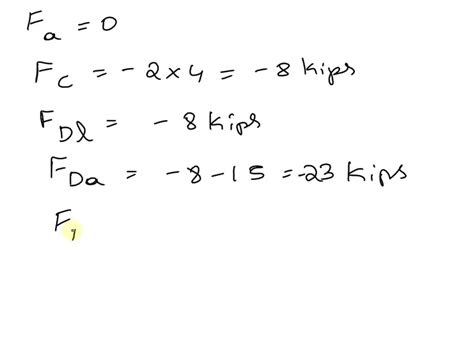 F_a = 0
F_C = - 2 × 4 = - 8 kips
F_Dl = - 8 kips
F_Da = - 8 - 15 = -23 kips
F